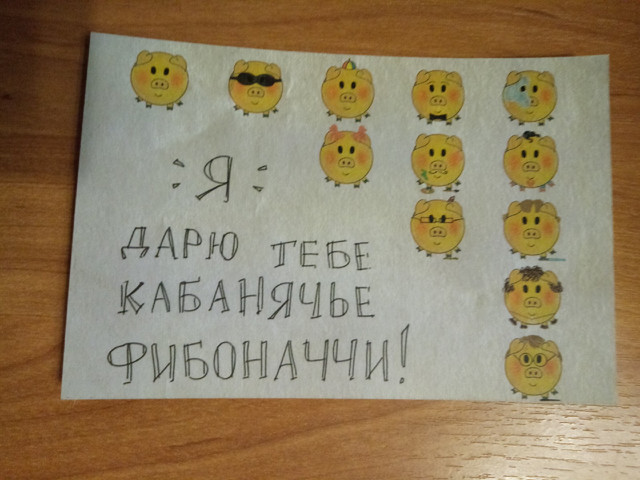 Я
ДАРЮ ТЕБЕ
КАБАНЯЧЬЕ
ФИБОНАЧЧИ!